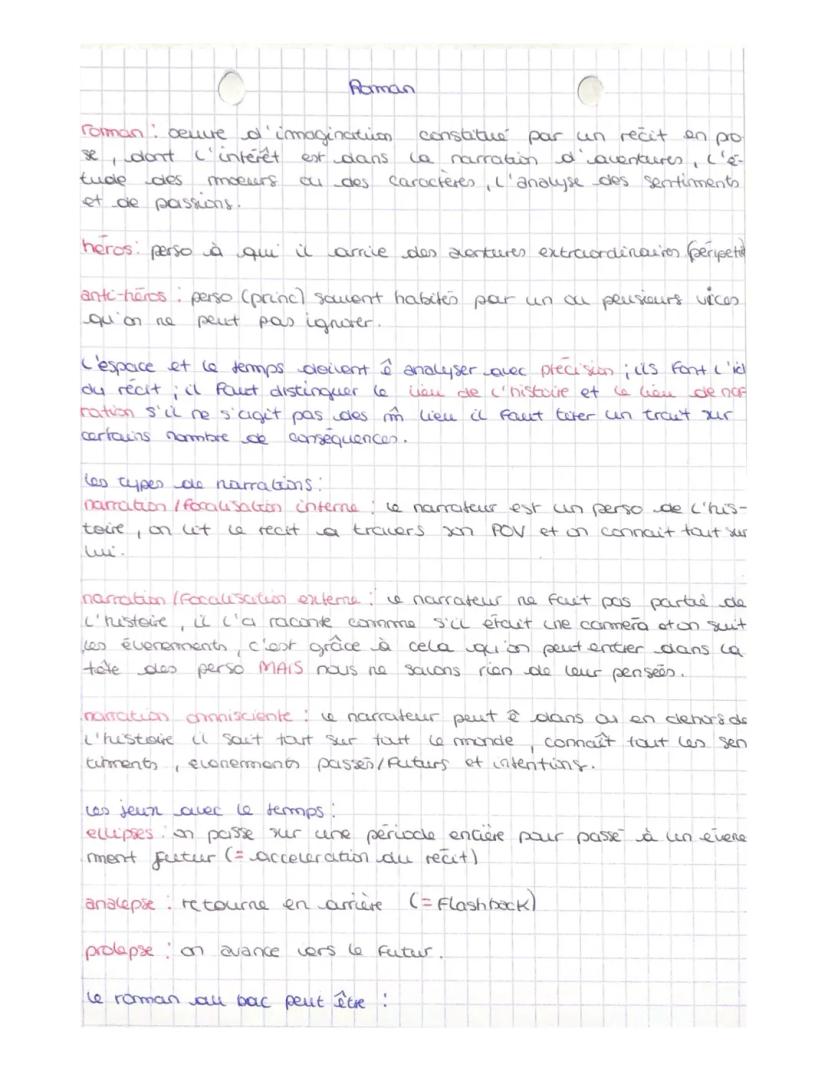 Roman
roman : oeuvre d'imagination constitué par un récit en pro
se, dont l'intérêt est dans la narration d'aventures, l'é-
tude des moeurs ou des caractères, l'analyse des sentiments
et de passions.
héros : perso à qui il arrive des aventures extraordinaires (péripetie
anti-héros : perso (princ) souvent habités par un ou peusieurs vices
qu'on ne peut pas ignorer.
L'espace et le temps doivent ê analyser avec précision ; ils font l'id
du récit ; il faut distinguer le lieu de l'histoire et le lieu de nar
ration s'il ne s'agit pas des m̂ lieu il faut tirer un trait sur
certains nombre de conséquences.
les types de narrations :
narration / focalisation interne : le narrateur est un perso de l'his-
toire, on lit le récit a travers son POV et on connait tout sur
lui.
narration / focalisation externe : le narrateur ne fait pas partie de
l'histoire, il l'a raconte comme s'il était une camera et on suit
les évenements, c'est grâce à cela qu'on peut entrer dans la
tête des perso MAIS nous ne savons rien de leur pensées.
narration omnisciente : le narrateur peut ê dans ou en dehors de
l'histoire il sait tout sur tout le monde, connaît tout les sen
timents, evenements passés/futurs et intentions.
les jeux avec le temps :
ellipses : on passe sur une période entière pour passé à un évene
ment futur (= acceleration du récit)
analepse : retourne en arrière (= Flashback)
prolepse : on avance vers le futur.
le roman au bac peut être :